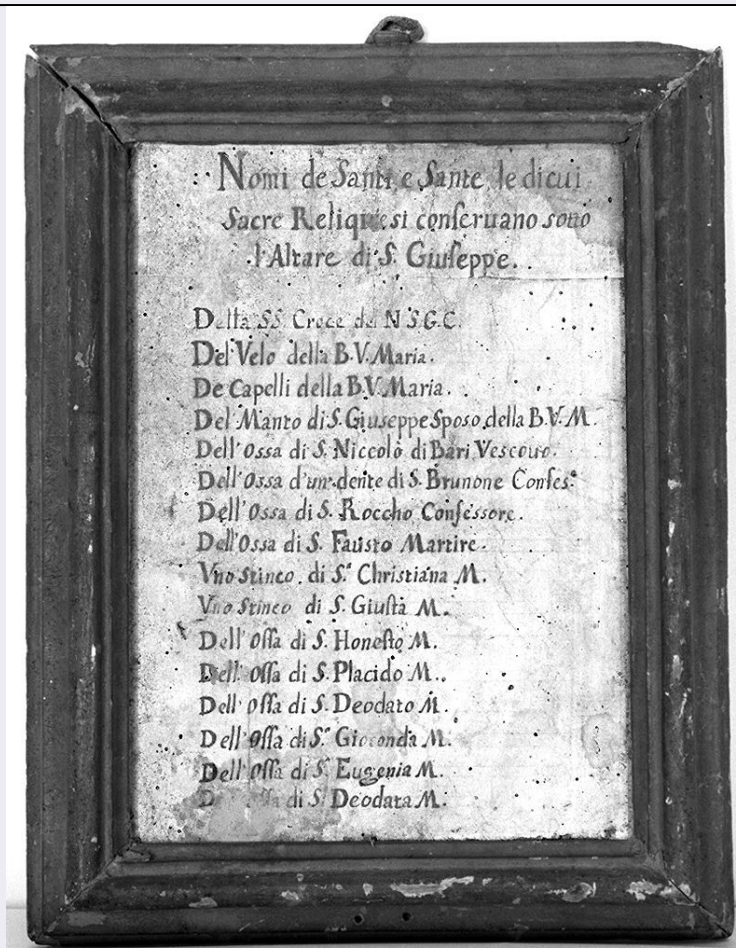 Nomi de Santi, e Sante, le di cui
Sacre Reliquie si conseruano sotto
l'Altare di S. Giuseppe.
Della SS. Croce di N.S.G.C.
Del Velo della B.V. Maria.
De Capelli della B.V. Maria.
Del Manto di S. Giuseppe Sposo della B.V.M.
Dell'Ossa di S. Niccolò di Bari Vescouo.
Dell'Ossa d'un dente di S. Brunone Confes.e
Dell'Ossa di S. Roccho Confessore.
Dell'Ossa di S. Fausto Martire.
Vno Stinco di S.a Christiana M.
Vno Stinco di S. Giusta M.
Dell'Ossa di S. Honesto M.
Dell'Ossa di S. Placido M.
Dell'Ossa di S. Deodato M.
Dell'Ossa di S.a Gioconda M.
Dell'Ossa di S.a Eugenia M.
di S. Deodata M.